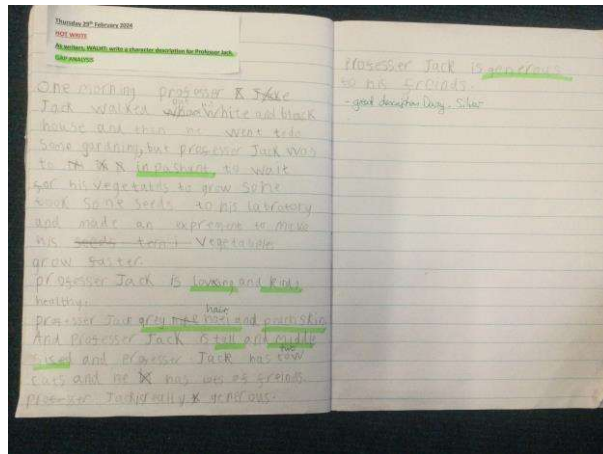 Thursday 29th February 2024
HOT WRITE
As writers, WALath: write a character description for Professor Jack.
GAP ANALYSIS
One morning progesser
Jack walked out White and black
house and then he went to do
Some gardning, but progesser Jack was
to in pashent, to wait
gor his vegetabls to grow some
took Some seeds to his labrotory
and made an to make
his seeds Vegetables
grow gaster.
progesser Jack is and kind
healthy.
progesser Jack grey hair and skin
And Progesser Jack is tall and middle
sised and Progesser Jack has two
cats and he has lots og greinds.
Progesser Jack really generous.
Progesser Jack is generous
to his greinds.
- great description Daisy, Silver